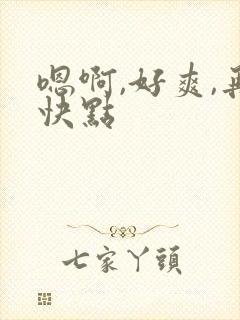 嗯啊,好爽,再
快點
七家丫頭